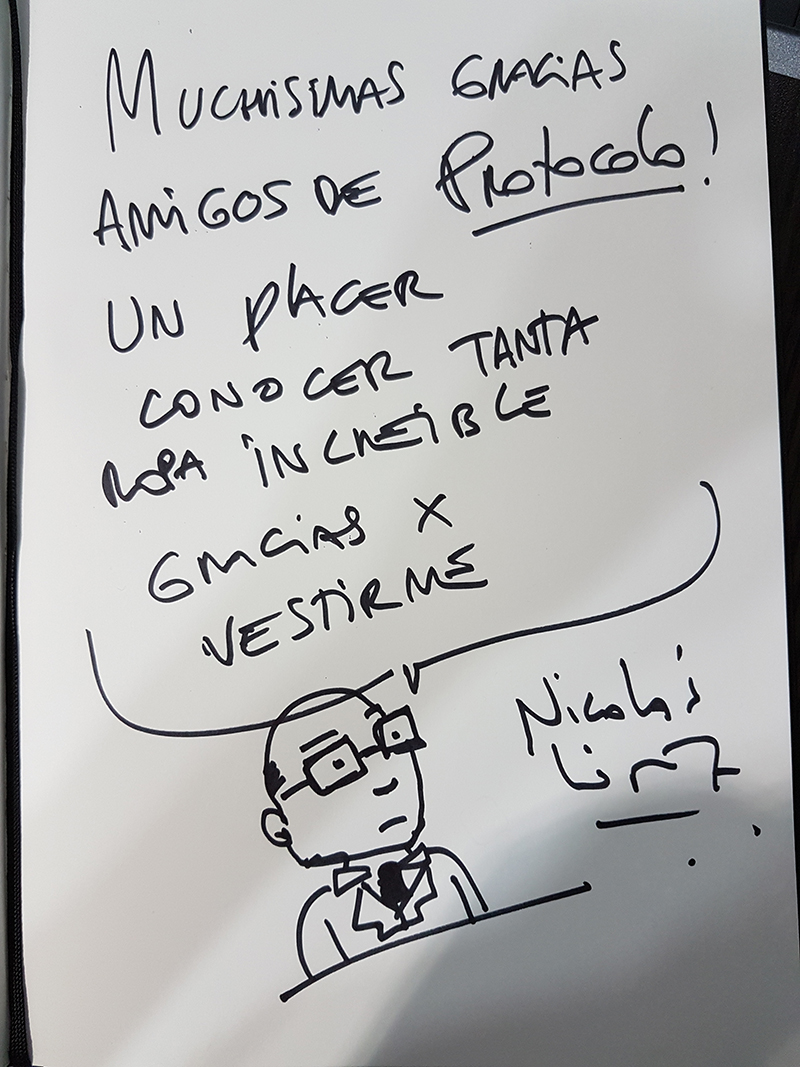 MUCHISIMAS GRACIAS
AMIGOS DE Protocolo!
UN PLACER
CONOCER TANTA
ROPA INCREÍBLE
GRACIAS X
VESTIRME
Nicolás